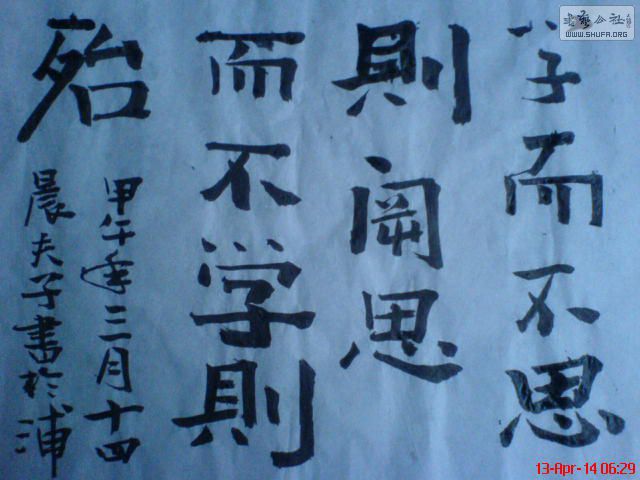 学而不思
則罔思
而不学則
殆
甲午年三月十四
晨夫子書於浦
书艺公社
WWW.SHUFA.ORG
13-Apr-14 06:29